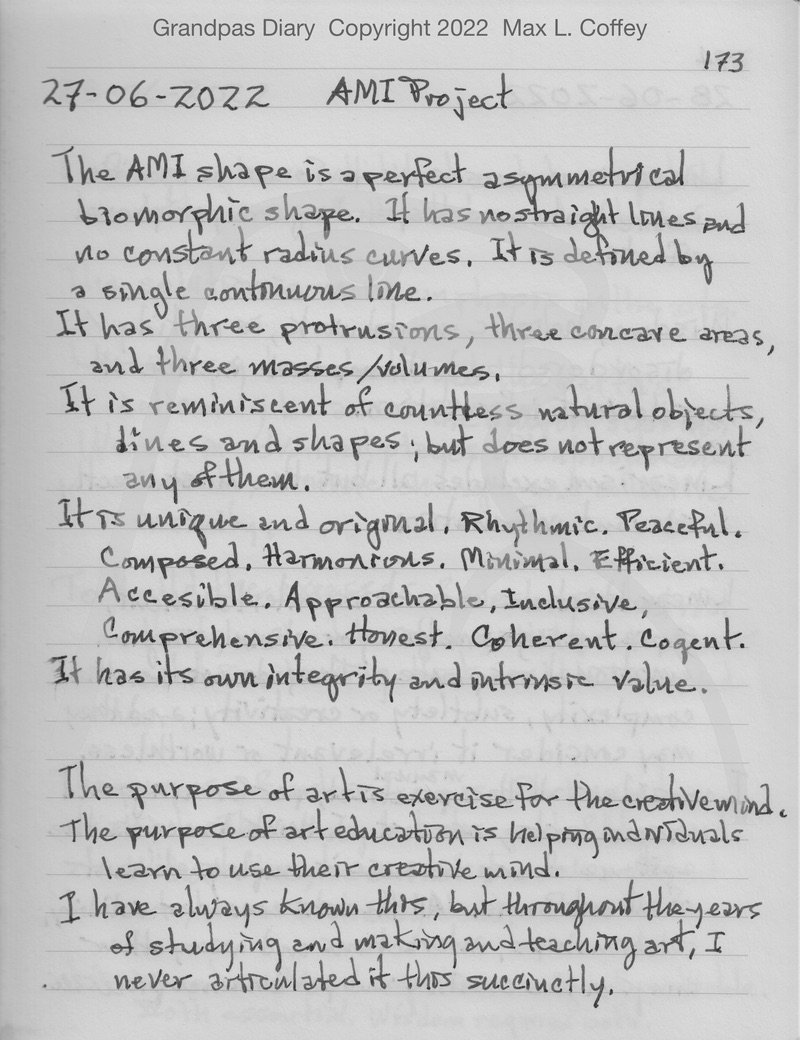 Grandpas Diary Copyright 2022 Max L. Coffey
173
27-06-2022 AMI Project
The AMI shape is a perfect asymmetrical
biomorphic shape. It has no straight lines and
no constant radius curves. It is defined by
a single continuous line.
It has three protrusions, three concave areas,
and three masses/volumes.
It is reminiscent of countless natural objects,
lines and shapes; but does not represent
any of them.
It is unique and original. Rhythmic. Peaceful.
Composed. Harmonious. Minimal. Efficient.
Accesible. Approachable, Inclusive,
Comprehensive. Honest. Coherent. Cogent.
It has its own integrity and intrinsic value.
The purpose of art is exercise for the creative mind.
The purpose of art education is helping individuals
learn to use their creative mind.
I have always known this, but throughout the years
of studying and making and teaching art, I
never articulated it this succinctly.